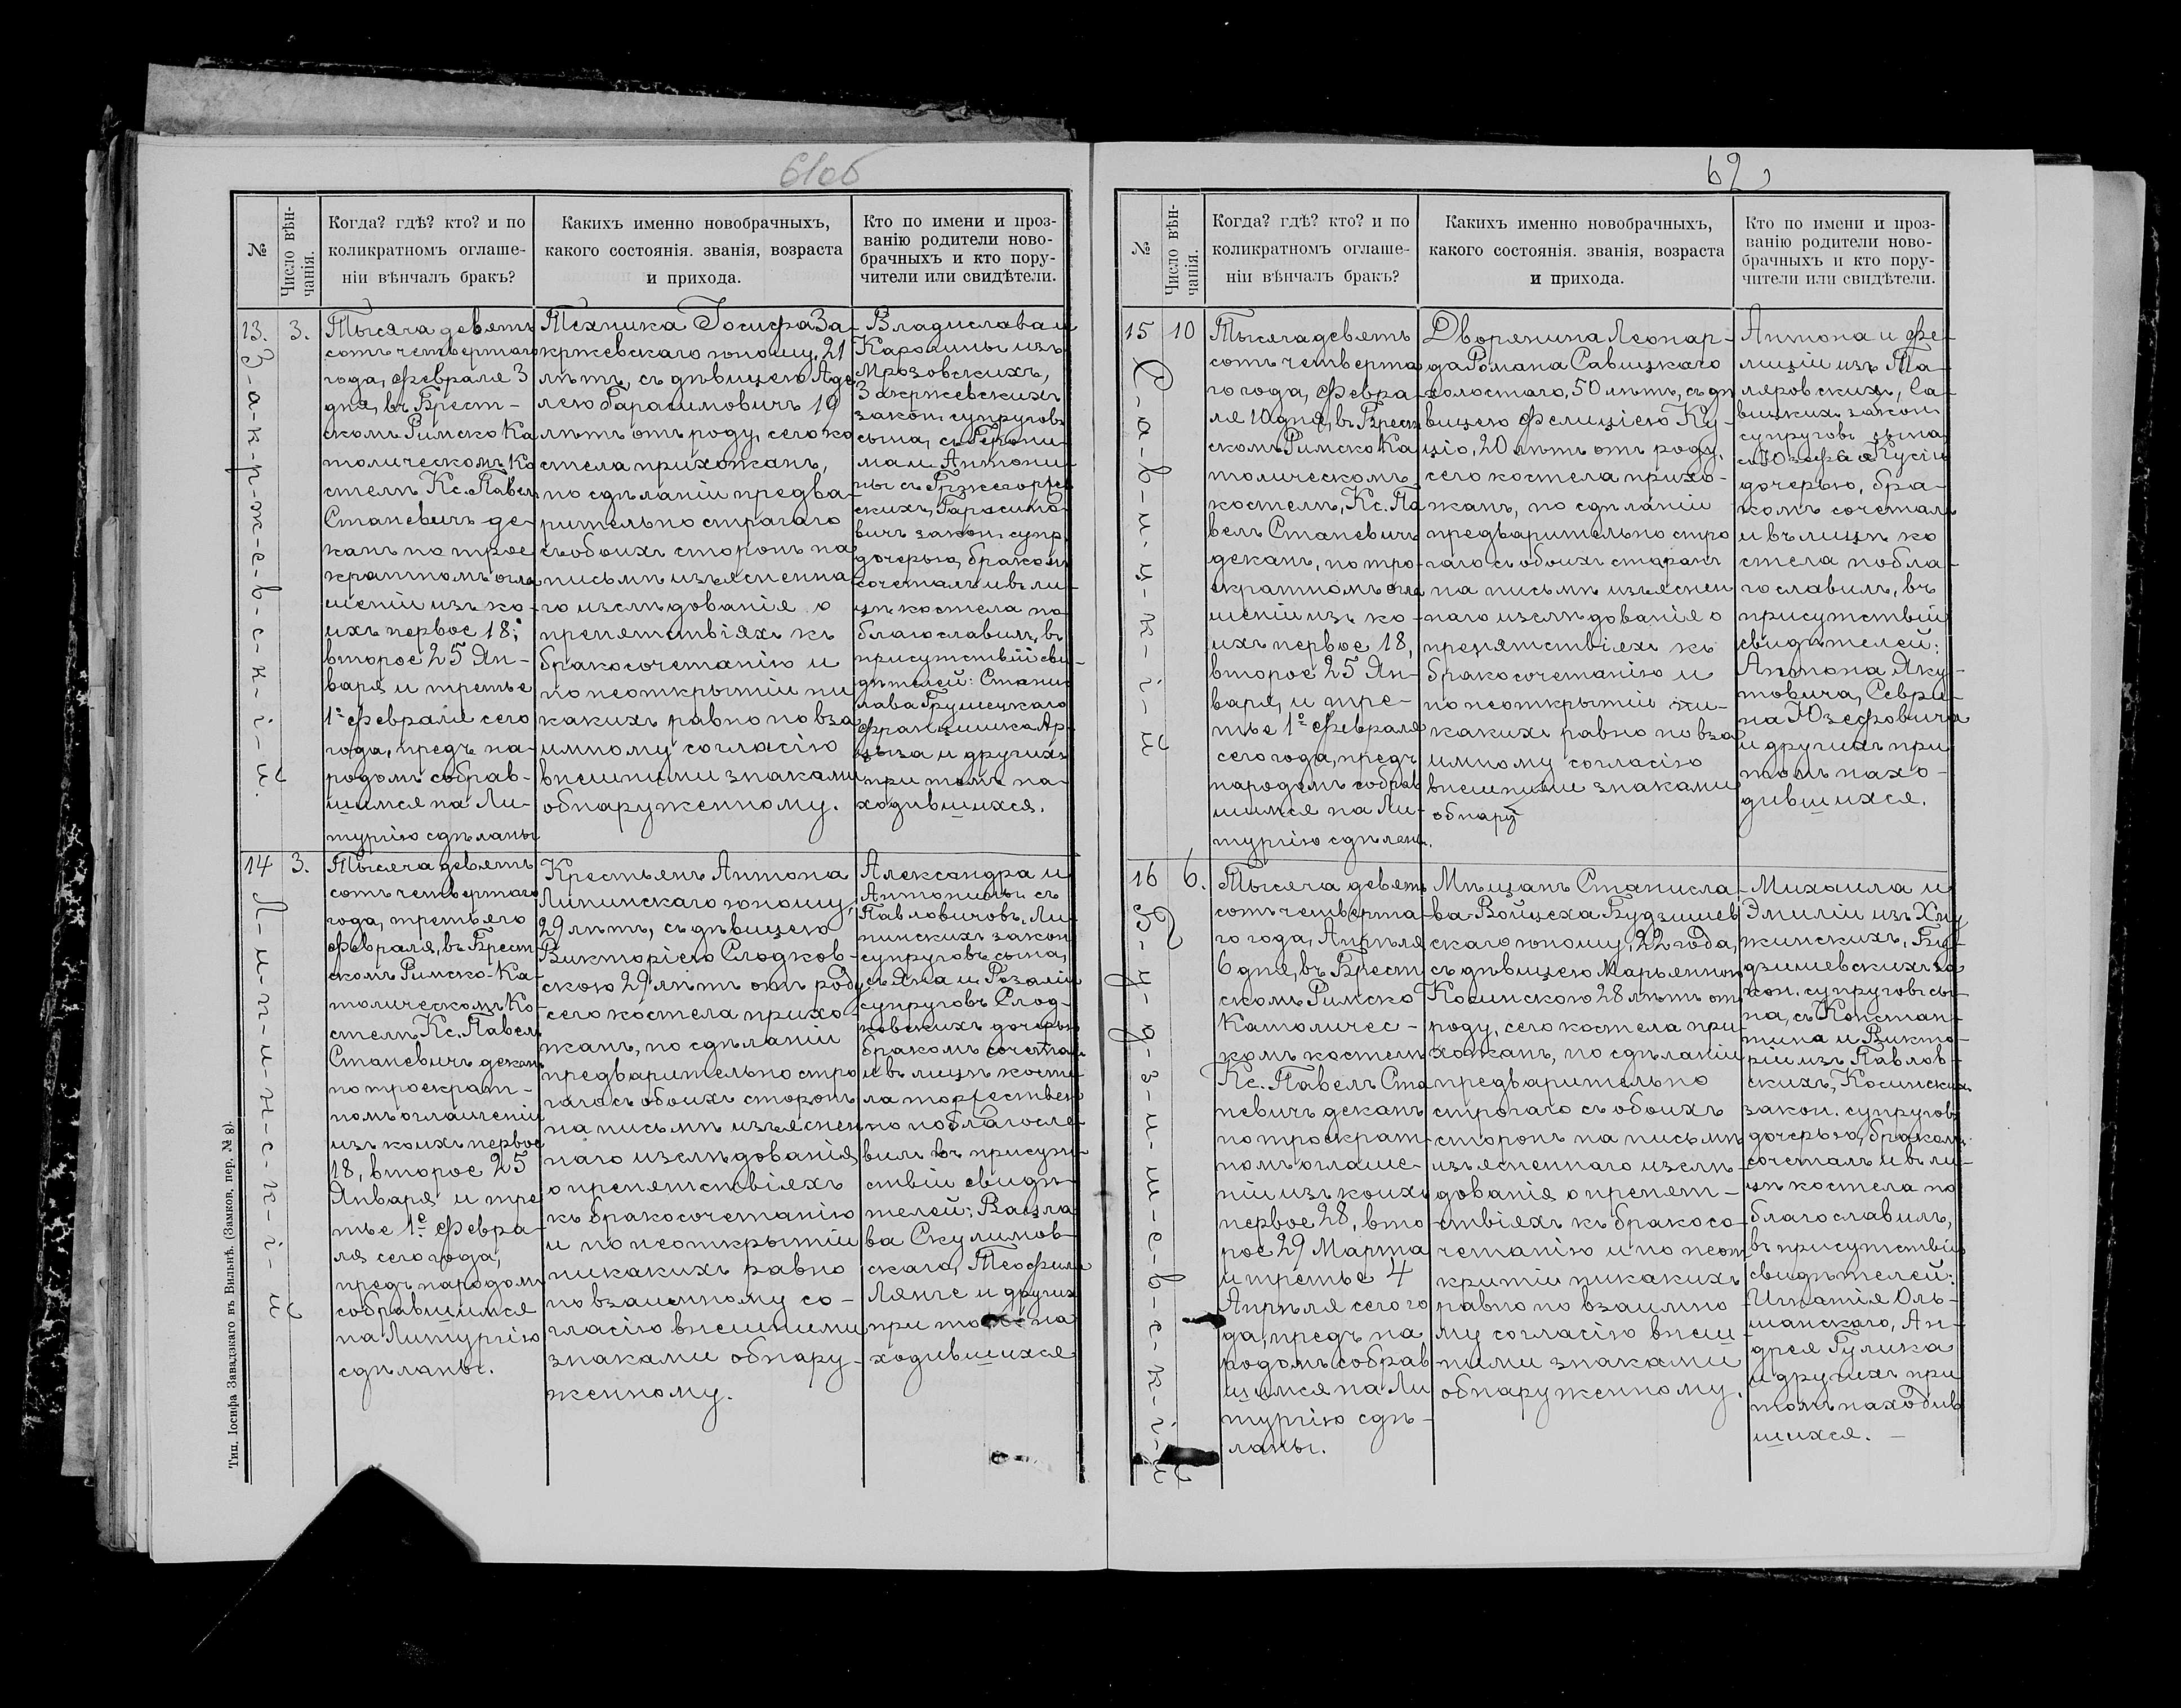 61об
№
Число вѣн-
чанія.
Когда? гдѣ? кто? и по
коликратномъ оглаше-
ніи вѣнчалъ бракъ?
Какихъ именно новобрачныхъ,
какого состоянія. званія, возраста
и прихода.
Кто по имени и проз-
ванію родители ново-
брачныхъ и кто пору-
чители или свидѣтели.
13.
З-а-к-р-ж-е-в-с-к-і-й.
3.
Тысяча девять
сотъ четвертаго
года, Февраля 3
дня, въ Брест-
скомъ Римско Ка
толическомъ Ко
стелѣ Кс. Павелъ
Станевичъ де-
канъ по трое
кратномъ огла
шеніи изъ ко-
ихъ первое 18;
второе 25 Ян-
варя и третье
1е Февраля сего
года, предъ на-
родомъ собрав-
шимся на Ли-
тургію сдѣланы
Техника Іосифа За-
кржевскаго юношу, 21
лѣтъ, съ дѣвицею Аде
лею Гарасимовичъ 19
лѣтъ отъ роду, сего ко
стела прихожанъ,
по сдѣланіи предва-
рительно строгаго
съ обоихъ сторонъ на
письмѣ изъясненна
го изслѣдованія о
препятствіяхъ къ
бракосочетанію и
по неоткрытіи ни
какихъ равно по вза
имному согласію
внѣшними знаками
обнаруженному.
Владислава и
Каролины изъ
Мрозовскихъ,
Закржевскихъ
закон. супруговъ
сына, съ Герони-
ма и Антони-
ны съ Гржегоржев
скихъ, Гарасимо-
вичъ закон. супр.
дочерью, бракомъ
сочеталъ и въ ли-
цѣ костела по-
благославилъ, въ
присутствіи сви-
дѣтелей: Стани-
лава Грушецкаго
Францишка Ар-
цыза и другихъ
при томъ на-
ходившихся.
14
Л-и-п-и-н-с-к-і-й
3.
Тысяча девять
сотъ четвертаго
года, третьяго
Февраля, въ Брест
скомъ Римско-Ка-
толическомъ Ко-
стелѣ Кс. Павелъ
Станевичъ деканъ
по троекрат-
номъ оглашеніи
изъ коихъ первое
18, второе 25
Января и тре
тье 1е Февра-
ля сего года,
предъ народомъ
собравшимся
на Литургію
сдѣланы.
Крестьянъ Антона
Липинскаго юношу,
29 лѣтъ, съ дѣвицею
Викторіею Слодков-
скою 29 лѣтъ отъ роду
сего костела прихо-
жанъ, по сдѣланіи
предварительно стро
гаго съ обоихъ сторонъ
на письмѣ изъяснен
наго изслѣдованія
о препятствіяхъ
къ бракосочетанію
и по неоткрытіи
никакихъ равно
по взаимному со-
гласію внѣшними
знаками обнару-
женному.
Александра и
Антонины съ
Павловичовъ, Ли-
пинскихъ закон
супруговъ сына,
съ Яна и Розаліи
супруговъ Слод-
ковскихъ дочерью
бракомъ сочеталъ
и въ лицѣ косте-
ла торжествен
но поблагосла-
вилъ въ присут-
ствіи свидѣ-
телей: Вацла
ва Скулимов-
скаго, Теофила
Лянге и другихъ
при томъ на
ходившихся
Тип. Іосифа Завадзкаго въ Вильнѣ. (Замков. пер. № 8).
62
№
Число вѣн-
чанія.
Когда? гдѣ? кто? и по
коликратномъ оглаше-
ніи вѣнчалъ бракъ?
Какихъ именно новобрачныхъ,
какого состоянія. званія, возраста
и прихода.
Кто по имени и проз-
ванію родители ново-
брачныхъ и кто пору-
чители или свидѣтели.
15
С-а-в-и-ц-к-і-й
10
Тысяча девять
сотъ четверта
го года, Февра-
ля 10 дня, въ Брест
скомъ Римско Ка
толическомъ
костелѣ, Кс. Па
велъ Станевичъ
деканъ, по тро-
екратномъ огла
шеніи изъ ко-
ихъ первое 18,
второе 25 Ян-
варя, и тре-
тье 1е Февраля
сего года, предъ
народомъ собрав
шимся на Ли-
тургію сдѣланы.
Дворянина Леонар-
да Романа Савицкаго
холостаго, 50 лѣтъ, съ дѣ
вицею Фелиціею Ку-
ціо, 20 лѣтъ отъ роду.
сего костела прихо-
жанъ, по сдѣланіи
предварительно стро
гаго съ обоихъ сторонъ
на письмѣ изъяснен
наго изслѣдованія о
препятствіяхъ къ
бракосочетанію и
по неоткрытіи ни-
какихъ равно по вза
имному согласію
внѣшними знаками
обнару
Антона и Фе-
лиціи изъ Та-
ляровскихъ, Са-
вицкихъ закон
супруговъ сына
съ Юзефа Куціо
дочерью, бра-
комъ сочеталъ
и въ лицѣ ко
стела побла-
гославилъ, въ
присутствіи
свидѣтелей:
Антона Яку-
товича, Севри-
на Юзефовича
и другихъ при
томъ нахо-
дившихся.
16
Б-у-д-з-и-ш-е-в-с-к-і-й
6.
Тысяча девять
сотъ четверта-
го года, Апрѣля
6 дня, въ Брест
скомъ Римско
Католичес-
комъ костелѣ
Кс. Павелъ Ста
невичъ деканъ
по троекрат-
номъ оглаше-
ніи изъ коихъ
первое 28, вто
рое 29 Марта
и третье 4
Апрѣля сего го
да, предъ на
родомъ собрав
шимся на Ли
тургію сдѣ-
ланы.
Мѣщанъ Станисла-
ва-Войцеха Будзишев
скаго юношу, 22 года,
съ дѣвицею Марьянною
Косинскою 28 лѣтъ отъ
роду, сего костела при-
хожанъ, по сдѣланіи
предварительно
строгаго съ обоихъ
сторонъ на письмѣ
изъясненнаго изслѣ-
дованія о препят-
ствіяхъ къ бракосо-
четанію и по неот
крытіи никакихъ
равно по взаимно
му согласію внѣш-
ними знаками
обнаруженному.
Михаила и
Эмиліи изъ
Бу-
дзишевскихъ за
кон. супруговъ сы-
на, съ Констан-
тина и Викто-
ріи изъ Павлов-
скихъ, Косинскихъ
закон. супруговъ
дочерью, бракомъ
сочеталъ и въ ли-
цѣ костела по
благославилъ,
въ присутствіи
свидѣтелей:
Игнатія Оль-
шанскаго, Ан-
дрея Гулика
и другихъ при
томъ находив
шихся.